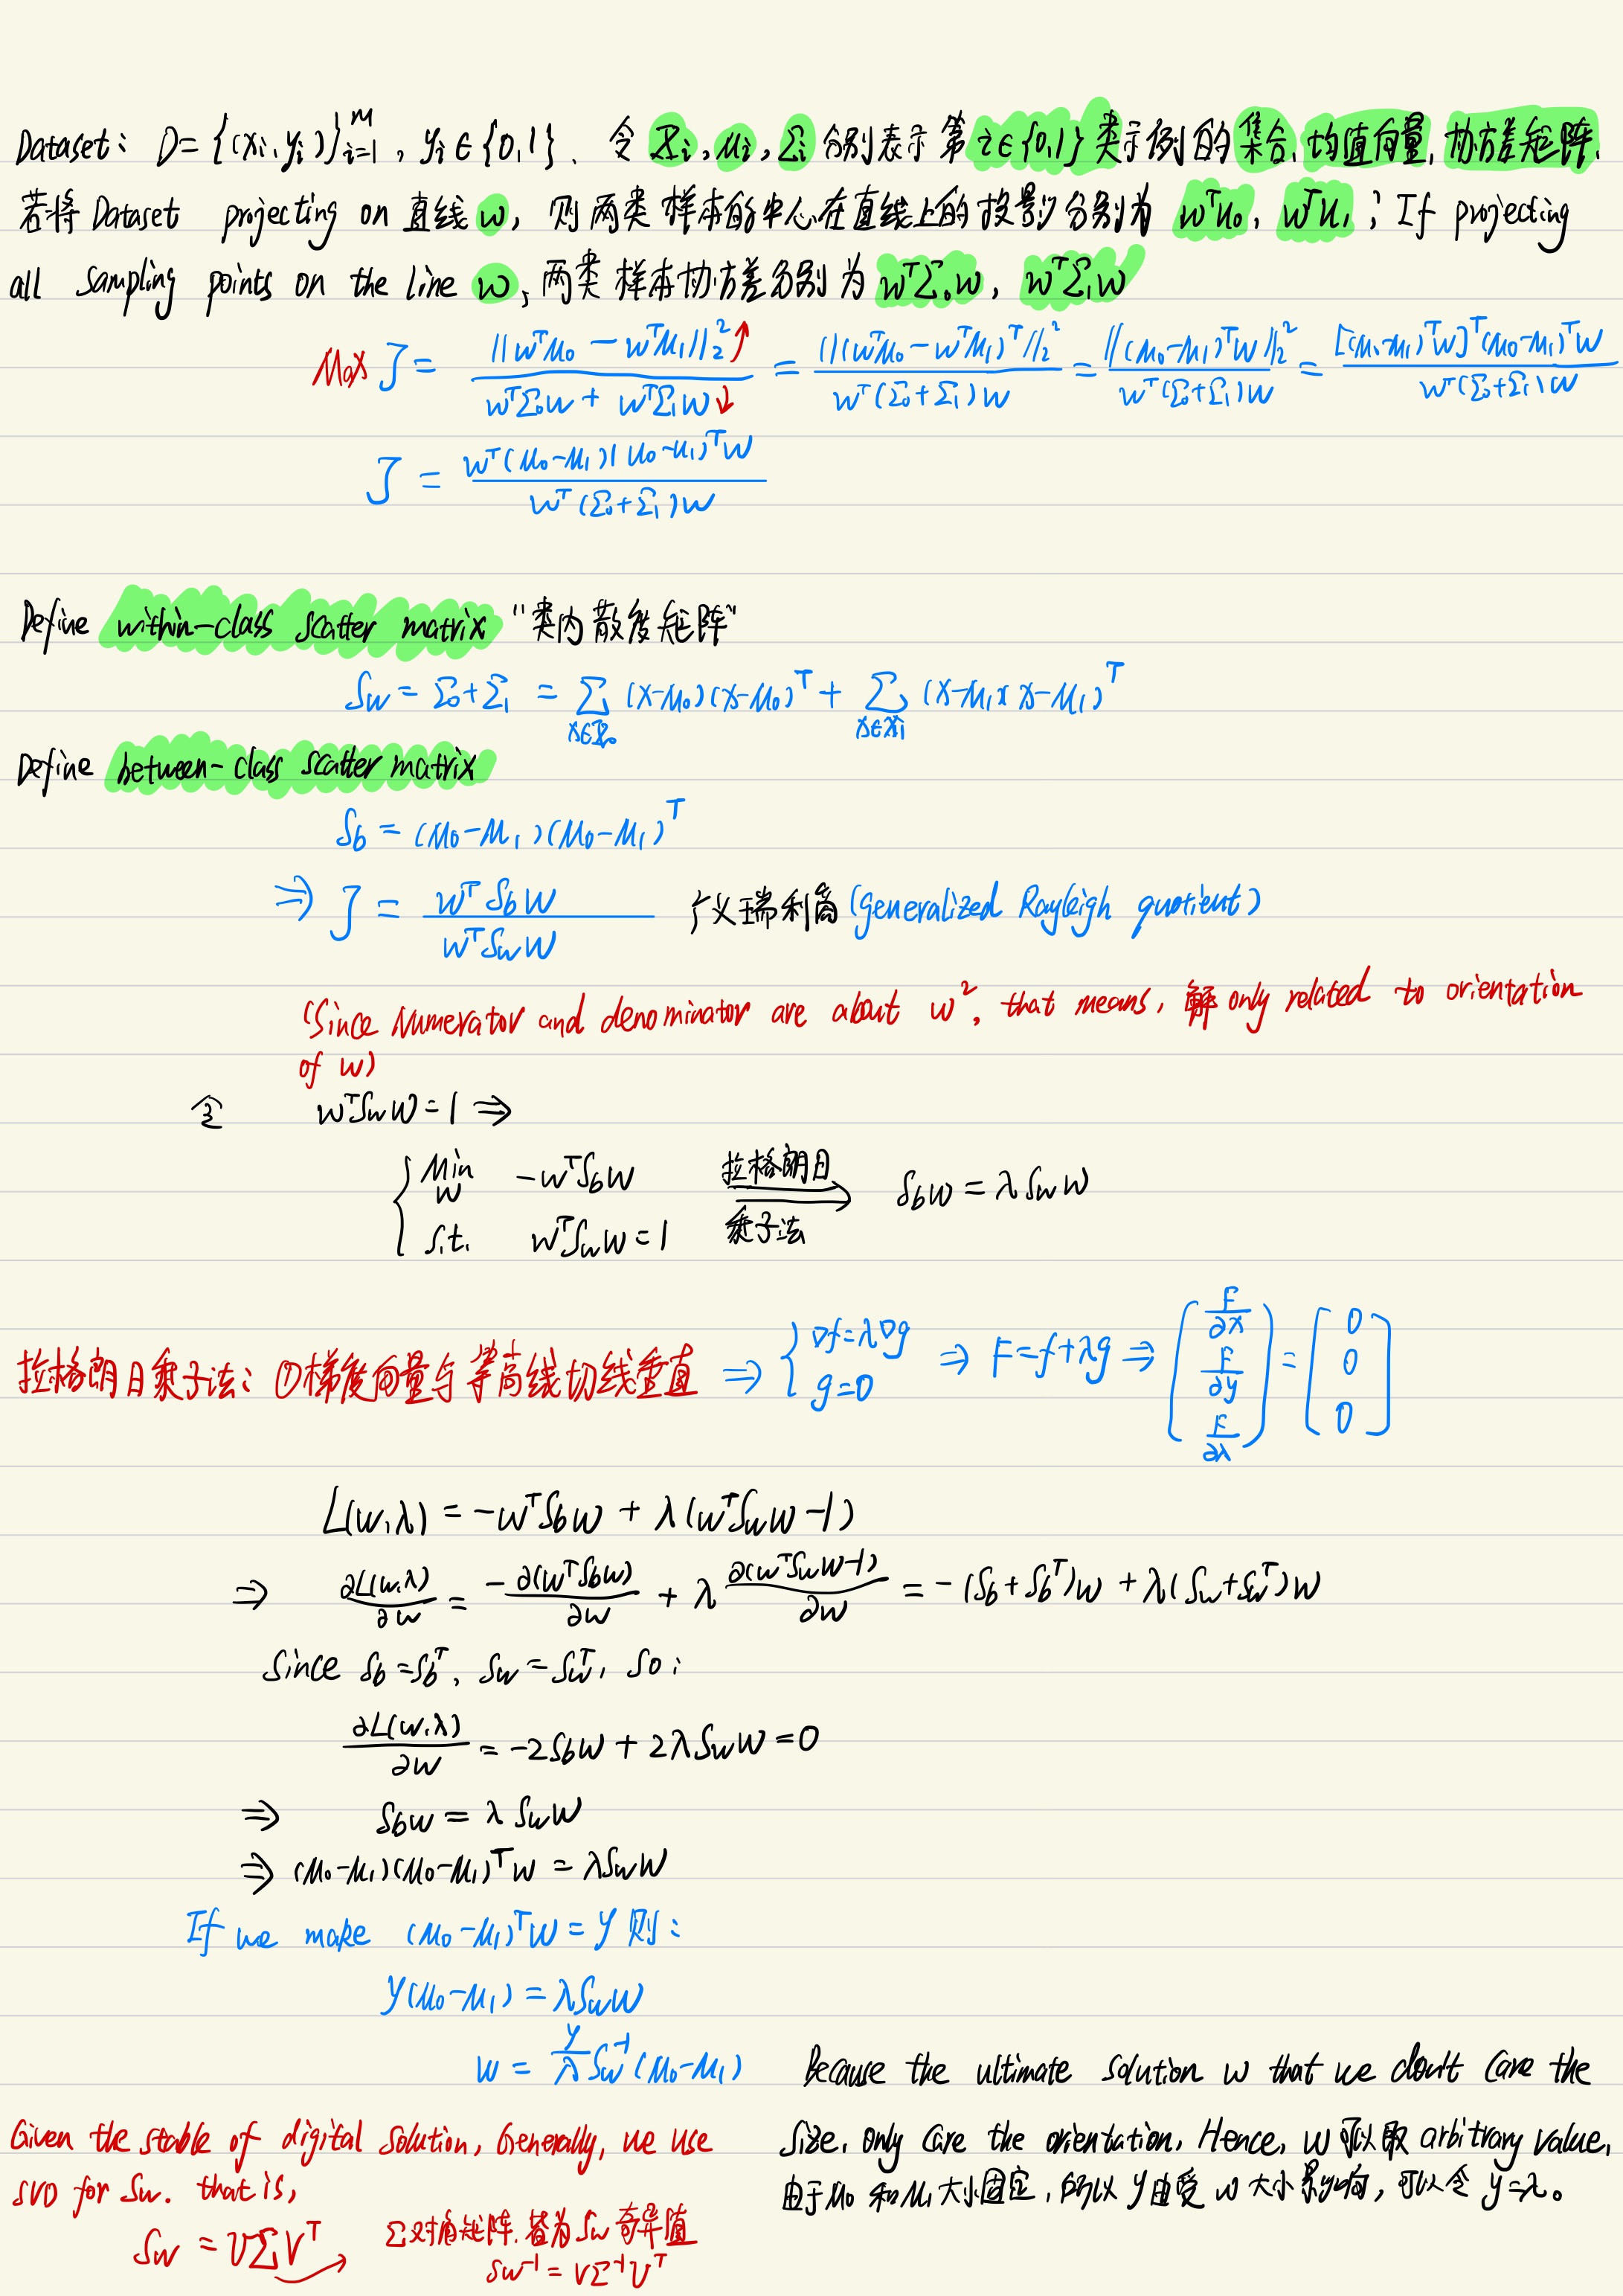 Dataset: D={(xi,yi)}_{i=1}^{m}, yi∈{0,1}. 令 Xi, μi, Σi 分别表示第 i∈{0,1} 类示例的集合, 均值向量, 协方差矩阵.
若将 Dataset projecting on 直线 w, 则两类样本的中心在直线上的投影分别为 w^Tμ0, w^Tμ1; If projecting
all sampling points on the line w, 两类样本协方差分别为 w^TΣ0w, w^TΣ1w
Max J = ||w^Tμ0 - w^Tμ1||_2^2↑ / (w^TΣ0w + w^TΣ1w↓) = ||(w^Tμ0 - w^Tμ1)^T||_2^2 / w^T(Σ0+Σ1)w = ||(μ0-μ1)^Tw||_2^2 / w^T(Σ0+Σ1)w = [(μ0-μ1)^Tw]^T(μ0-μ1)^Tw / w^T(Σ0+Σ1)w
J = w^T(μ0-μ1)(μ0-μ1)^Tw / w^T(Σ0+Σ1)w
Define within-class scatter matrix "类内散度矩阵"
Sw = Σ0+Σ1 = Σ_{x∈X0} (x-μ0)(x-μ0)^T + Σ_{x∈X1} (x-μ1)(x-μ1)^T
Define between-class scatter matrix
Sb = (μ0-μ1)(μ0-μ1)^T
⇒ J = w^T Sb w / w^T Sw w 广义瑞利商 (generalized Rayleigh quotient)
(Since numerator and denominator are about w^2, that means, 解 only related to orientation
of w)
令 w^TSww=1 ⇒
{ Min_w -w^TSbw 拉格朗日 ⇒ Sbw = λSww
s.t. w^TSww=1 乘子法
拉格朗日乘子法: ①梯度向量与等高线切线垂直 ⇒ { ∇f=λ∇g, g=0 ⇒ F=f+λg ⇒ (F/∂x, F/∂y, F/∂λ) = [0 0 0]
L(w,λ) = -w^TSbw + λ(w^TSww-1)
⇒ ∂L(w,λ)/∂w = -∂(w^TSbw)/∂w + λ ∂(w^TSww-1)/∂w = -(Sb+Sb^T)w + λ(Sw+Sw^T)w
Since Sb=Sb^T, Sw=Sw^T, So:
∂L(w,λ)/∂w = -2Sbw + 2λSww = 0
⇒ Sbw = λSww
⇒ (μ0-μ1)(μ0-μ1)^Tw = λSww
If we make (μ0-μ1)^Tw = y 则:
y(μ0-μ1) = λSww
w = y/λ Sw^-1(μ0-μ1)
Because the ultimate solution w that we don't care the
size, only care the orientation, Hence, w 可以取 arbitrary value,
由于μ0 和μ1大小固定, 所以 y由受 w 大小影响, 可以令 y=λ。
Given the stable of digital solution, Generally, we use
SVD for Sw. that is,
Sw = UΣV^T → Σ对角矩阵.皆为Sw奇异值
Sw^-1 = VΣ^-1U^T